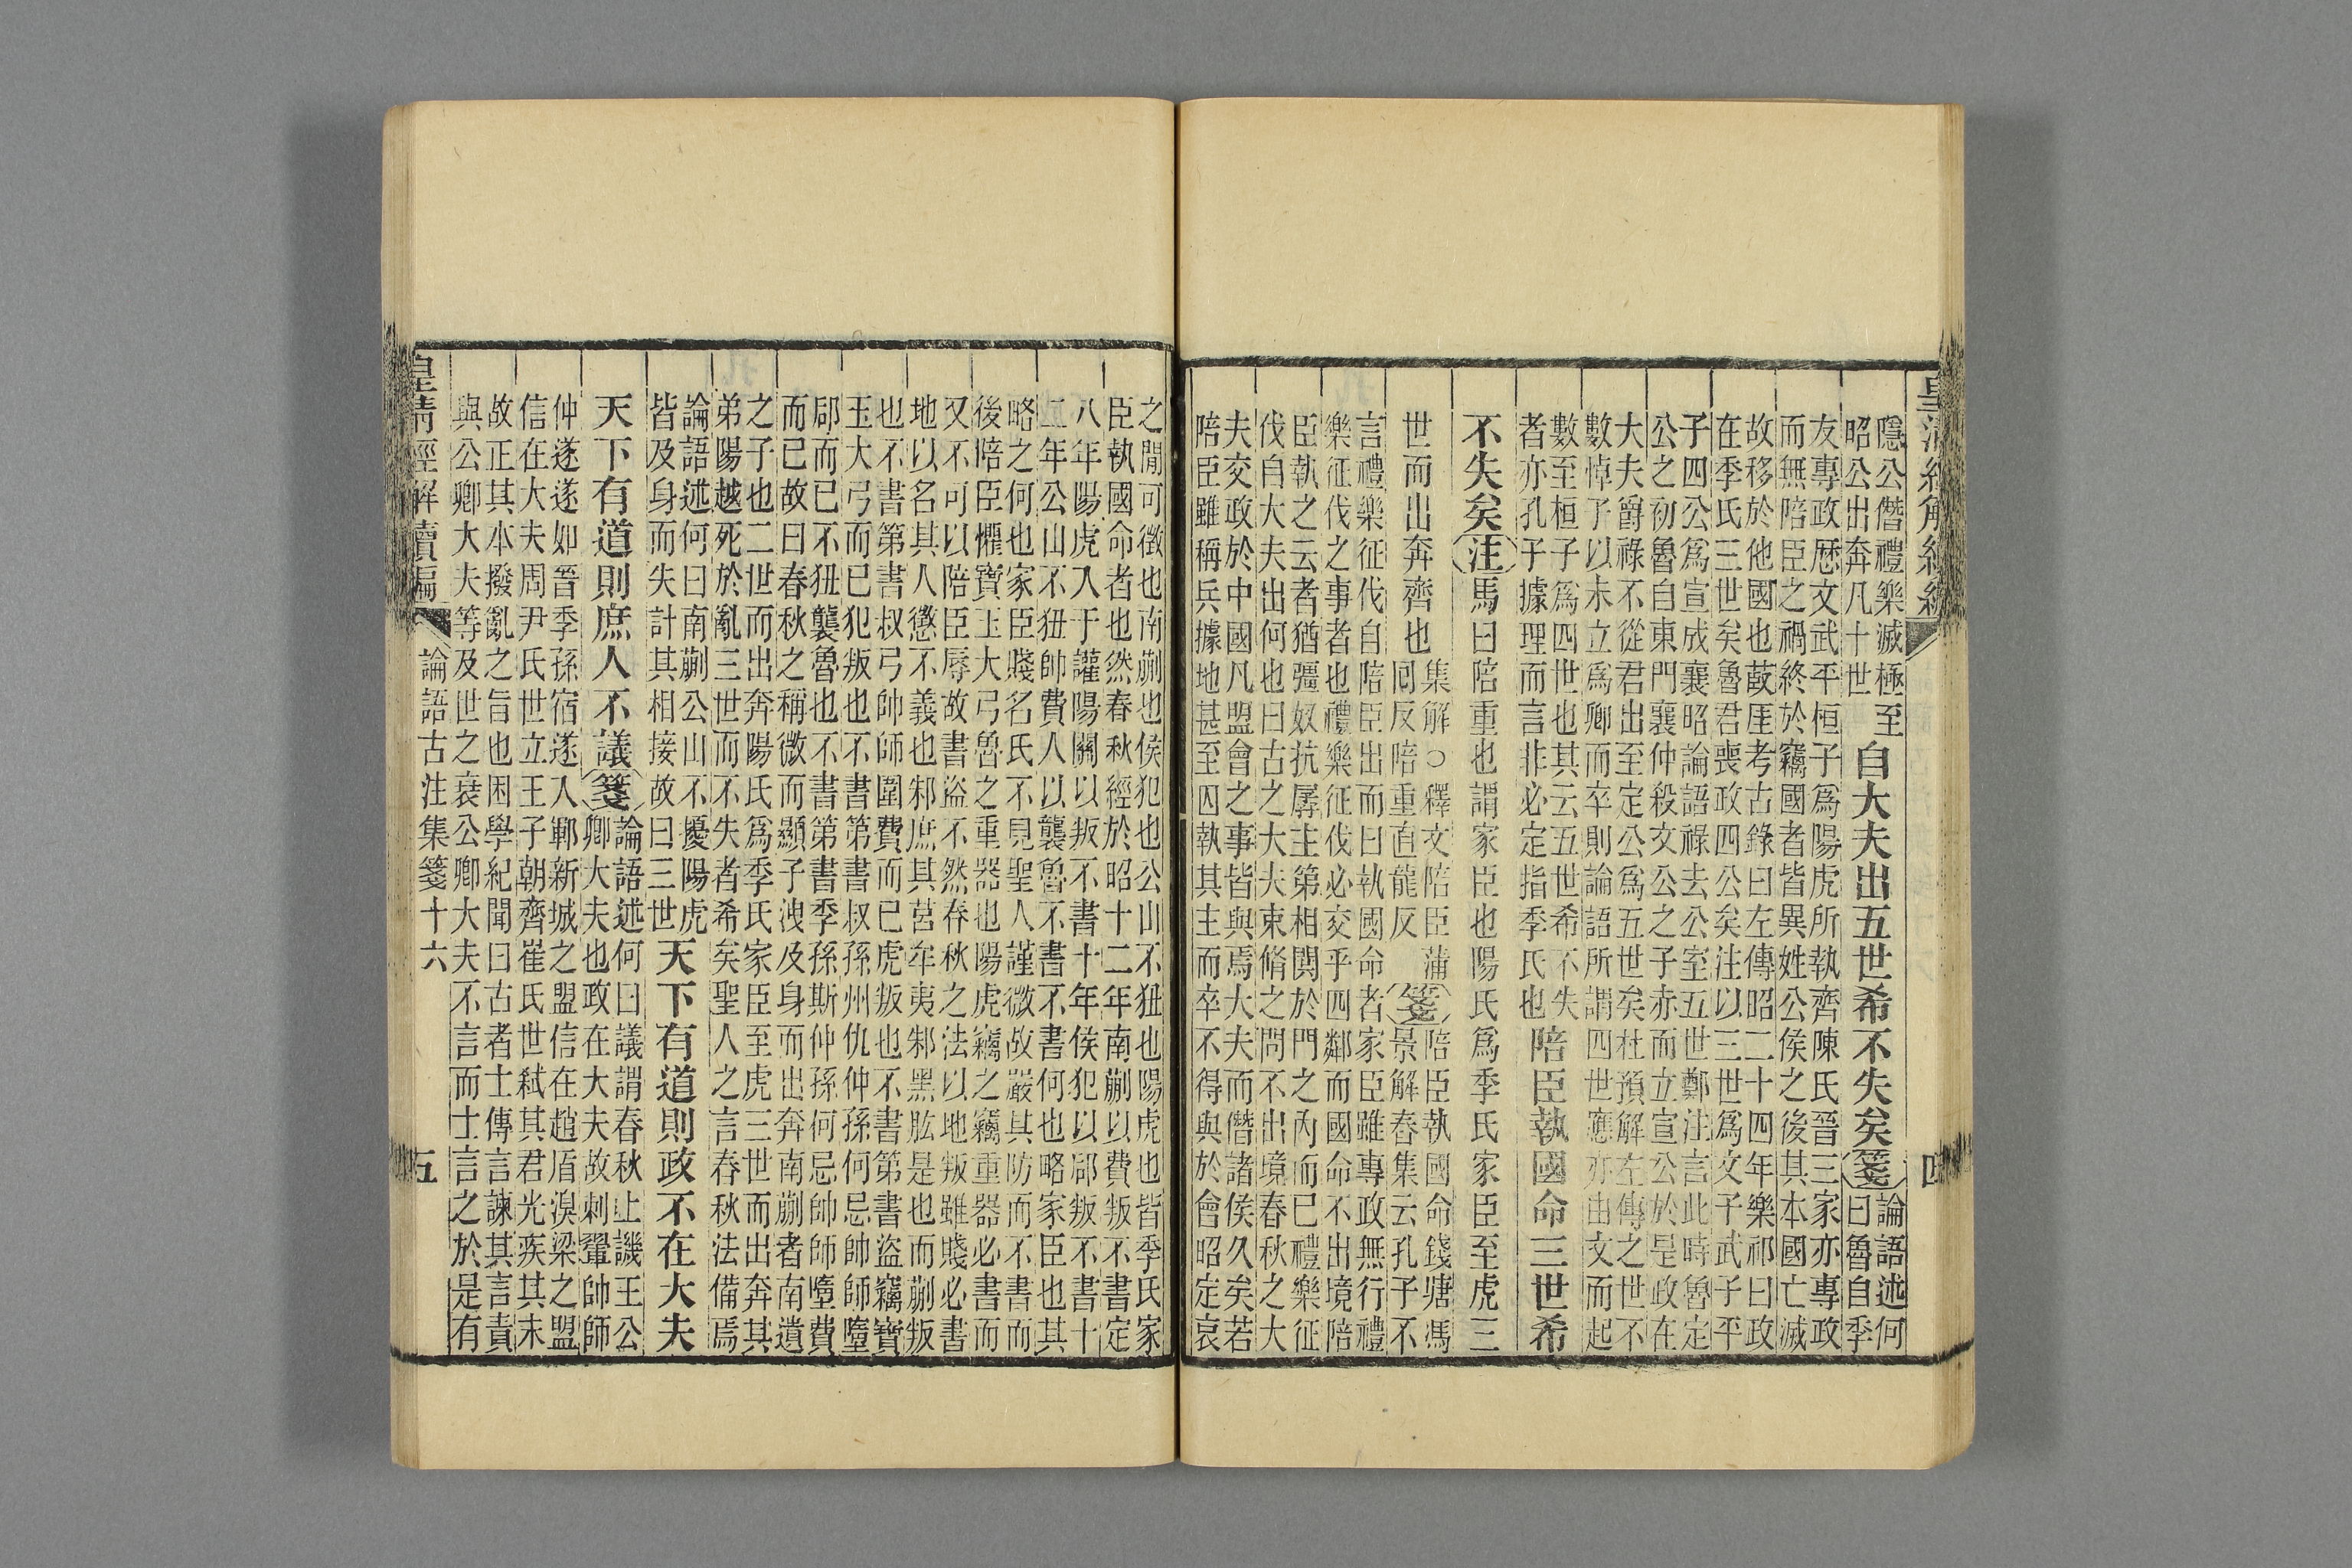 皇清經解續編 四
隱公僭禮樂滅極至
昭公出奔凡十世
自大夫出五世希不失矣箋
論語述何
曰魯自季
友專政歷文武平桓子爲陽虎所執齊陳氏晉三家亦專政
而無陪臣之禍終於竊國者皆異姓公侯之後其本國亡滅
故移於他國也蔎厓考古錄曰左傳昭二十四年樂祁曰政
在季氏三世矣魯君喪政四公矣注以三世爲文子武子平
子四公爲宣成襄昭論語祿去公室五世鄭注言此時魯定
公之初魯自東門襄仲殺文公之子赤而立宣公於是政在
大夫爵祿不從君出至定公爲五世矣杜預解左傳之世不
數悼子以未立爲卿而卒則論語所謂四世應亦由文而起
數至桓子爲四世也其云五世希不失
者亦孔子據理而言非必定指季氏也
陪臣執國命三世希
不失矣注馬曰陪重也謂家臣也陽氏爲季氏家臣至虎三
世而出奔齊也
集解○釋文陪臣蒲
回反陪重直龍反
箋
陪臣執國命錢塘馮
景解舂集云孔子不
言禮樂征伐自陪臣出而曰執國命者家臣雖專政無行禮
樂征伐之事者也禮樂征伐必交乎四鄰而國命不出境陪
臣執之云者猶彊奴抗孱主第相鬨於門之內而已禮樂征
伐自大夫出何也曰古之大夫束脩之問不出境春秋之大
夫交政於中國凡盟會之事皆與焉大夫而僭諸侯久矣若
陪臣雖稱兵據地甚至囚執其主而卒不得與於會昭定哀
之閒可徵也南蒯也侯犯也公山不狃也陽虎也皆季氏家
臣執國命者也然春秋經於昭十二年南蒯以費叛不書定
八年陽虎入于讙陽關以叛不書十年侯犯以郈叛不書十
二年公山不狃帥費人以襲魯不書不書何也略家臣也其
略之何也家臣賤名氏不見聖人謹微故嚴其防而不書而
後陪臣懼寶玉大弓魯之重器也陽虎竊之竊重器必書而
又不可以陪臣辱故書盜不然春秋之法以地叛雖賤必書
地以名其人懲不義也邾庶其莒牟夷邾黑肱是也而蒯叛
也不書第書叔弓帥師圍費而已虎叛也不書第書盜竊寶
玉大弓而已犯叛也不書第書叔孫州仇仲孫何忌帥師墮
郈而已不狃襲魯也不書第書季孫斯仲孫何忌帥師墮費
而已故曰春秋之稱微而顯子洩及身而出奔南蒯者南遺
之子也二世而出奔陽氏爲季氏家臣至虎三世而出奔其
弟陽越死於亂三世而不失者希矣聖人之言春秋法備焉
論語述何曰南蒯公山不擾陽虎
皆及身而失計其相接故曰三世
天下有道則政不在大夫
天下有道則庶人不議箋
論語述何曰議謂春秋上譏王公
卿大夫也政在大夫故刺翬帥師
仲遂遂如晉季孫宿遂入鄆新城之盟信在趙盾湨梁之盟
信在大夫周尹氏世立王子朝齊崔氏世弒其君光疾其末
故正其本撥亂之旨也困學紀聞曰古者士傳言諫其言責
與公卿大夫等及世之衰公卿大夫不言而士言之於是有
皇清經解續編 論語古注集箋十六 五